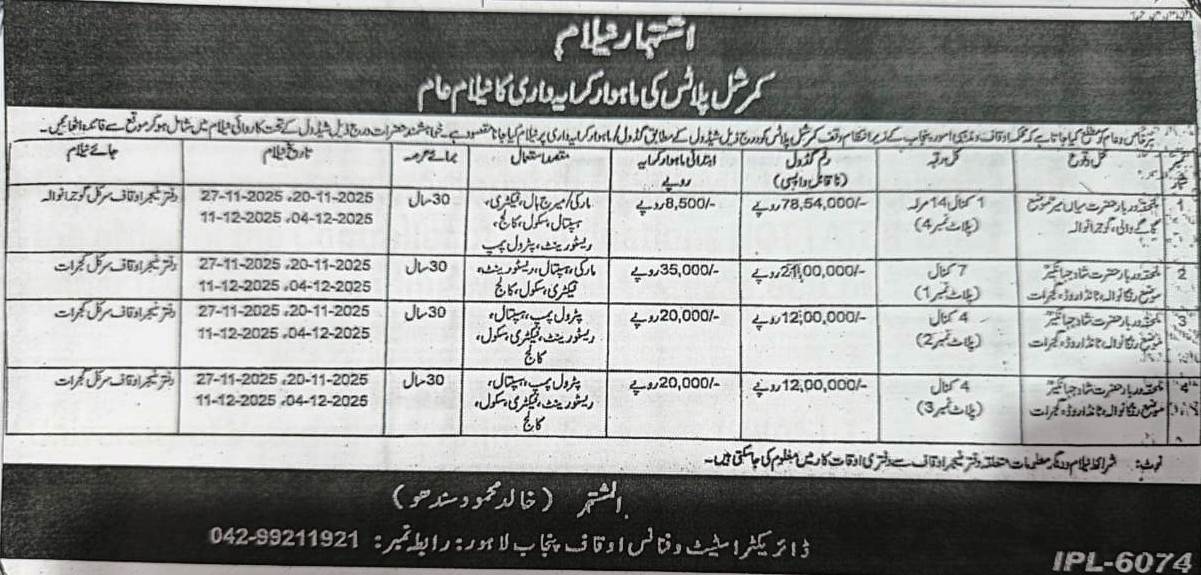 اشتہار نیلام
کمرشل پلاٹس کی ماہوار کرایہ داری کا نیلام عام
ہر خاص و عام کو مطلع کیا جاتا ہے کہ محکمہ اوقاف و مذہبی امور پنجاب کے زیر انتظام وقف کمرشل پلاٹس کو درج ذیل شیڈول کے مطابق گڈول/ماہوار کرایہ داری پر نیلام کیا جانا مقصود ہے۔ خواہشمند حضرات درج ذیل شیڈول کے تحت کاروائی نیلام میں شامل ہو کر موقع سے فائدہ اٹھائیں۔
نمبر شمار محل وقوع کل رقبہ رقم گڈول (ناقابل واپسی) ابتدائی ماہوار کرایہ روپے مقصد استعمال برائے عرصہ تاریخ نیلام جائے نیلام
1 ملحقہ دربار حضرت میاں میر موضع 1 کنال 14 مرلہ 78,54,000/- روپے 8,500/- روپے مارکی/میرج ہال، فیکٹری، 30 سال 20-11-2025، 27-11-2025 دفتر منیجر اوقاف سرکل گوجرانوالہ
گوجرانوالہ (پلاٹ نمبر 4) ہسپتال، سکول، کالج، 04-12-2025، 11-12-2025
ریسٹورینٹ، پٹرول پمپ
2 ملحقہ دربار حضرت شاہ جہانگیر 7 کنال 21,00,000/- روپے 35,000/- روپے مارکی، ہسپتال، ریسٹورینٹ، 30 سال 20-11-2025، 27-11-2025 دفتر منیجر اوقاف سرکل گجرات
موضع ٹانڈا روڈ، گجرات (پلاٹ نمبر 1) فیکٹری، سکول، کالج 04-12-2025، 11-12-2025
3 ملحقہ دربار حضرت شاہ جہانگیر 4 کنال 12,00,000/- روپے 20,000/- روپے پٹرول پمپ، ہسپتال، 30 سال 20-11-2025، 27-11-2025 دفتر منیجر اوقاف سرکل گجرات
موضع ٹانڈا روڈ، گجرات (پلاٹ نمبر 2) ریسٹورینٹ، فیکٹری، سکول، 04-12-2025، 11-12-2025
کالج
4 ملحقہ دربار حضرت شاہ جہانگیر 4 کنال 12,00,000/- روپے 20,000/- روپے پٹرول پمپ، ہسپتال، 30 سال 20-11-2025، 27-11-2025 دفتر منیجر اوقاف سرکل گجرات
موضع ٹانڈا روڈ، گجرات (پلاٹ نمبر 3) ریسٹورینٹ، فیکٹری، سکول، 04-12-2025، 11-12-2025
کالج
نوٹ: شرائط نیلام و دیگر معلومات متعلقہ دفتر منیجر اوقاف سے دفتری اوقات کار میں معلوم کی جاسکتی ہیں۔
المشتہر (خالد محمود سندھو)
ڈائریکٹر اسٹیٹ و فنانس اوقاف پنجاب لاہور: رابطہ نمبر: 042-99211921
IPL-6074